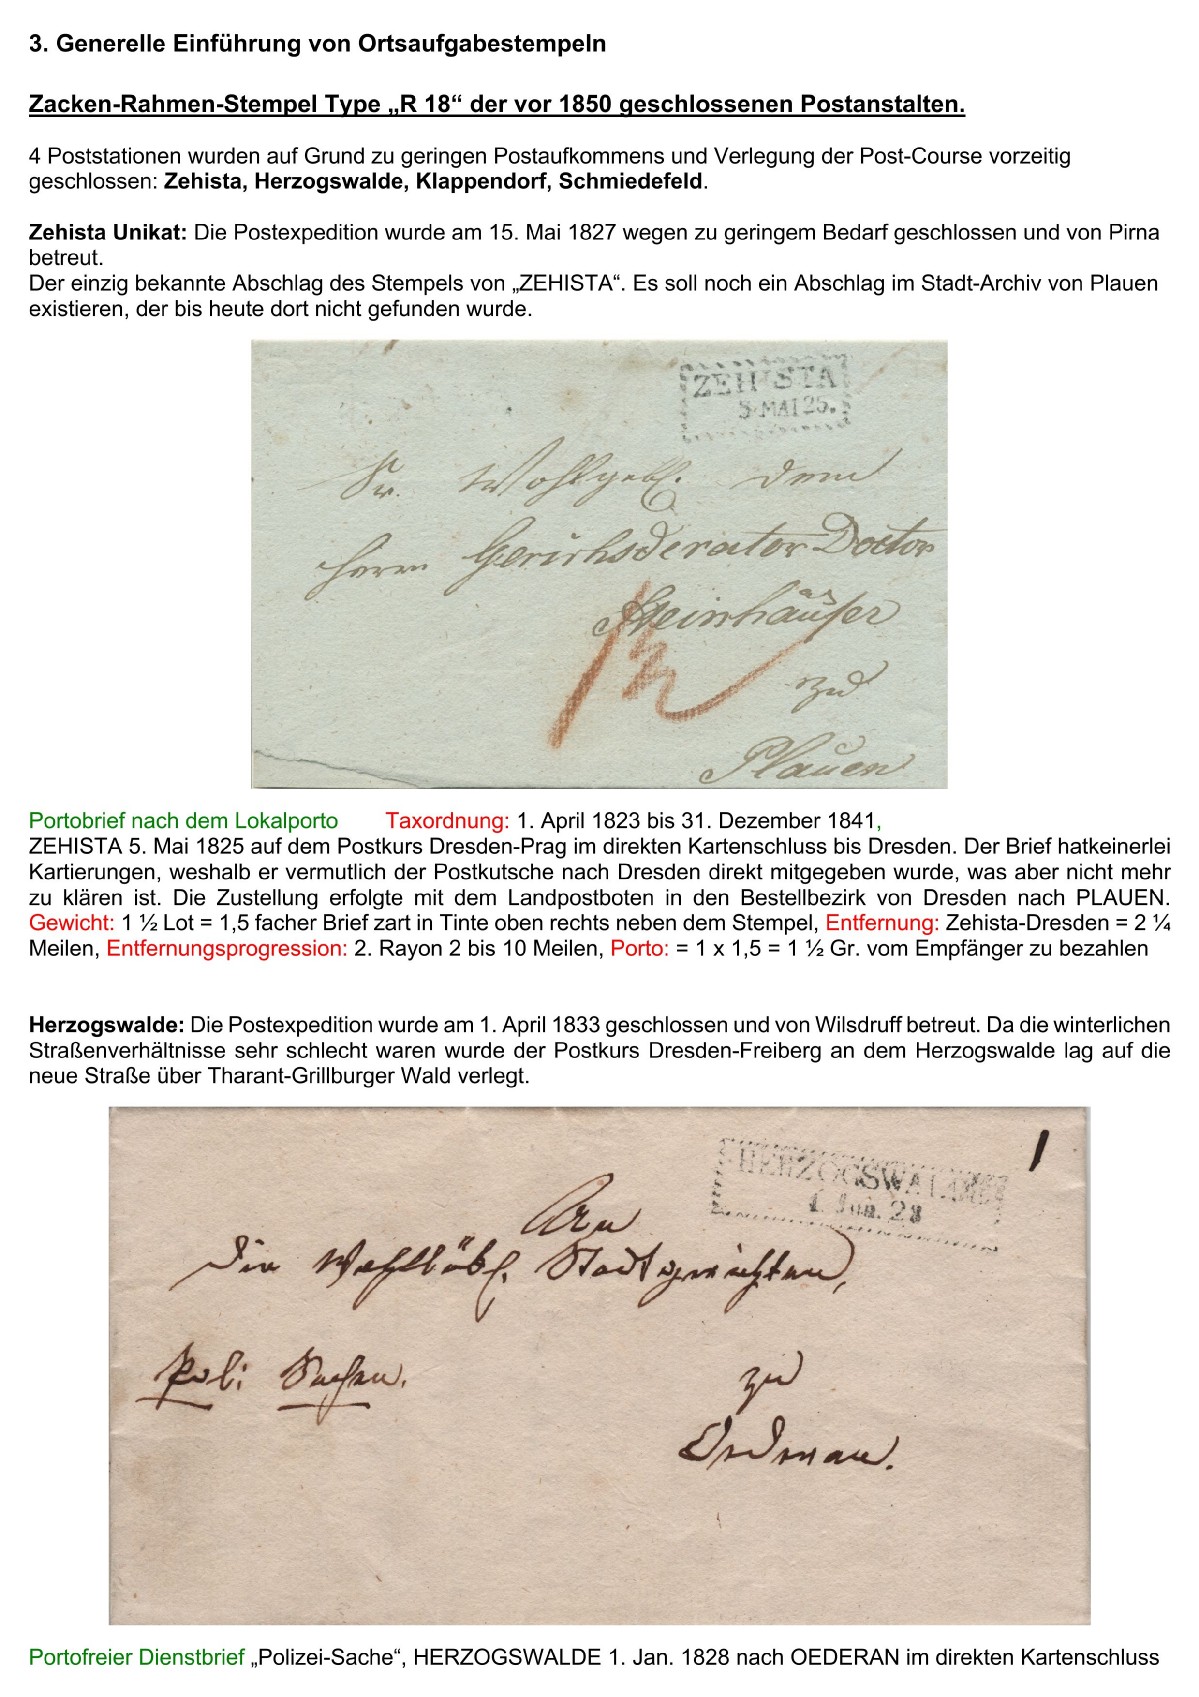 3. Generelle Einführung von Ortsaufgabestempeln
Zacken-Rahmen-Stempel Type „R 18“ der vor 1850 geschlossenen Postanstalten.
4 Poststationen wurden auf Grund zu geringen Postaufkommens und Verlegung der Post-Course vorzeitig
geschlossen: Zehista, Herzogswalde, Klappendorf, Schmiedefeld.
Zehista Unikat: Die Postexpedition wurde am 15. Mai 1827 wegen zu geringem Bedarf geschlossen und von Pirna
betreut.
Der einzig bekannte Abschlag des Stempels von „ZEHISTA“. Es soll noch ein Abschlag im Stadt-Archiv von Plauen
existieren, der bis heute dort nicht gefunden wurde.
ZEHISTA
5 MAI 25.
Sr. Wohlgeb. dem
Herrn Gerichsderator Doctor
Steinhäuser
1/2
zu
Plauen
Portobrief nach dem Lokalporto Taxordnung: 1. April 1823 bis 31. Dezember 1841,
ZEHISTA 5. Mai 1825 auf dem Postkurs Dresden-Prag im direkten Kartenschluss bis Dresden. Der Brief hatkeinerlei
Kartierungen, weshalb er vermutlich der Postkutsche nach Dresden direkt mitgegeben wurde, was aber nicht mehr
zu klären ist. Die Zustellung erfolgte mit dem Landpostboten in den Bestellbezirk von Dresden nach PLAUEN.
Gewicht: 1 ½ Lot = 1,5 facher Brief zart in Tinte oben rechts neben dem Stempel, Entfernung: Zehista-Dresden = 2 ¼
Meilen, Entfernungsprogression: 2. Rayon 2 bis 10 Meilen, Porto: = 1 x 1,5 = 1 ½ Gr. vom Empfänger zu bezahlen
Herzogswalde: Die Postexpedition wurde am 1. April 1833 geschlossen und von Wilsdruff betreut. Da die winterlichen
Straßenverhältnisse sehr schlecht waren wurde der Postkurs Dresden-Freiberg an dem Herzogswalde lag auf die
neue Straße über Tharant-Grillburger Wald verlegt.
1
HERZOGSWALDE
1. Jan. 28
An
Die Wohllöbl. Stadtgerichten,
Pol: Sachen.
zu
Oederan.
Portofreier Dienstbrief „Polizei-Sache“, HERZOGSWALDE 1. Jan. 1828 nach OEDERAN im direkten Kartenschluss